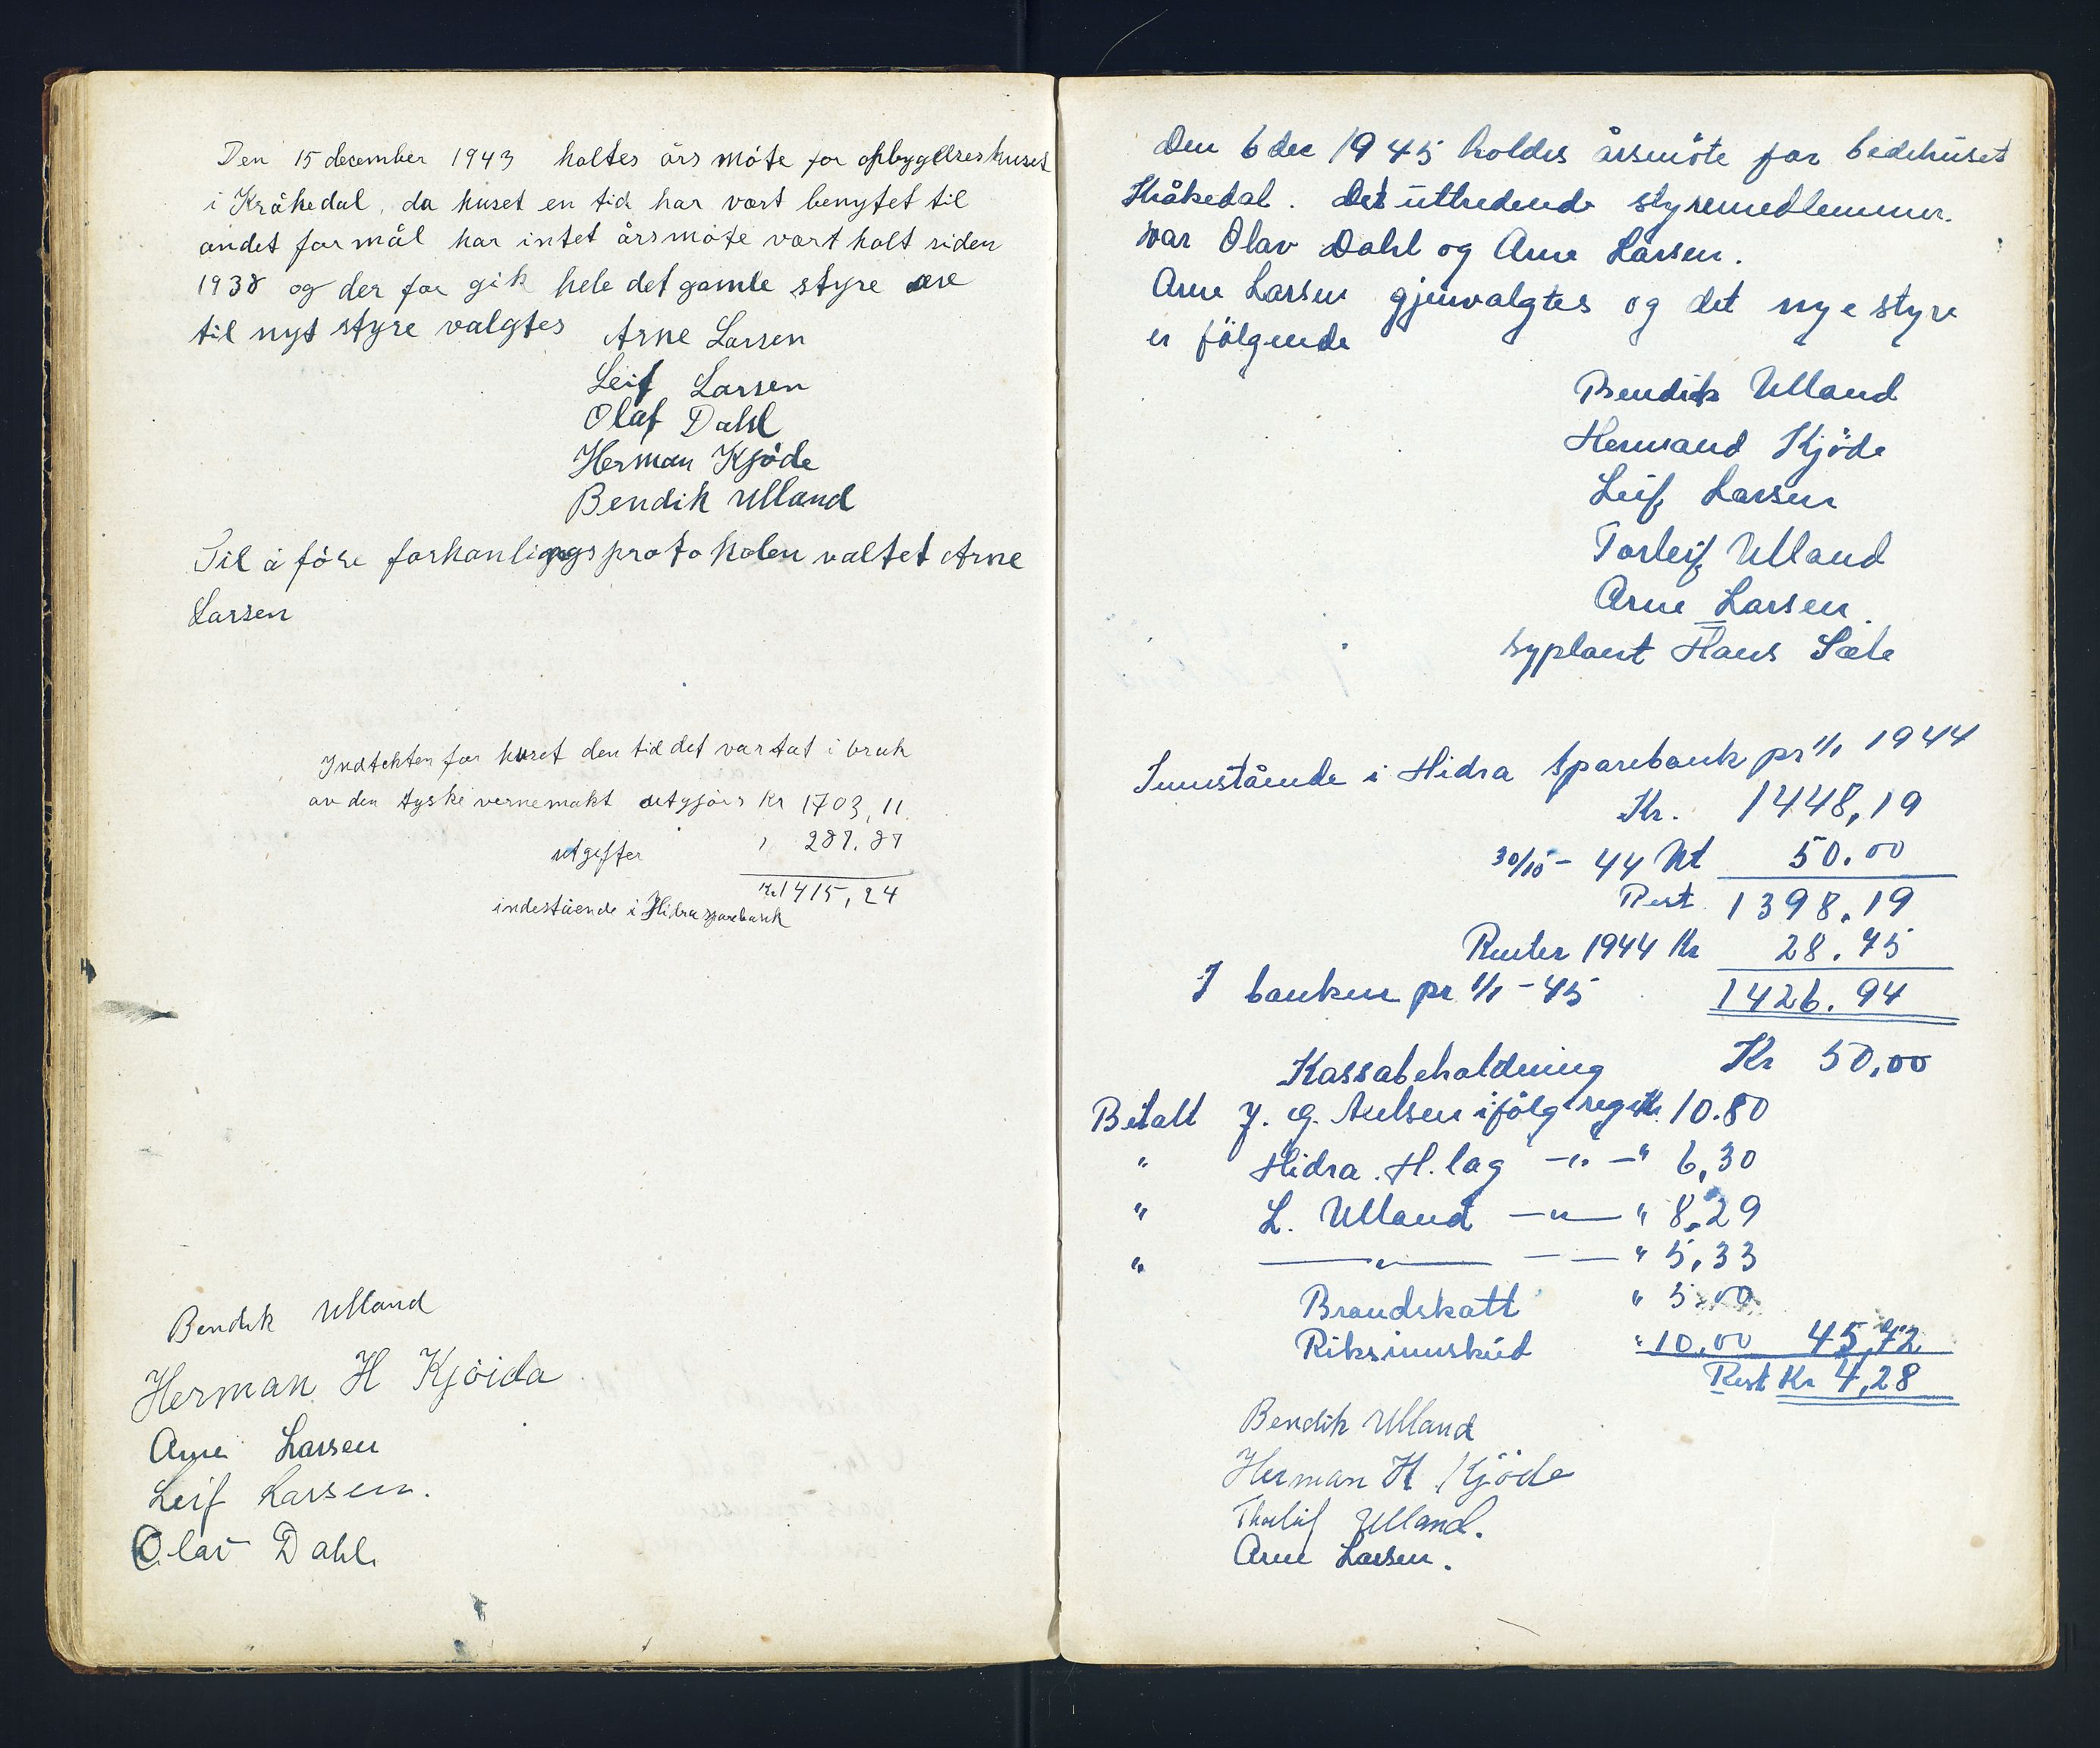 Den 15 december 1943 holtes års møte for opbyggelseshuset
i Kråkedal, da huset en tid har vært benyttet til
andet formål har intet årsmøte vært holt siden
1938 og der for gik hele det gamle styre
til nyt styre valgtes Arne Larsen
Leif Larsen
Olaf Dahl
Herman Kjöde
Bendik Ulland
Til å före forhanligngsprotokolen valtet Arne
Larsen
Indtekten for huset den tid det var tat i bruk
av den tyske vernemakt utgjörs Kr 1703,11.
utgifter " 287.87
Kr 1415,24
indestående i Hidra sparebank
Bendik Ulland
Herman H Kjöida
Arne Larsen
Leif Larsen.
Olav Dahl
Den 6 dec 1945 holdes årsmöte for bedehuset
Kråkedal. Det uttredende styremedlemmer.
var Olav Dahl og Arne Larsen.
Arne Larsen gjenvalgtes og det nye styre
er fölgende
Bendik Ulland
Hermand Kjöde
Leif Larsen
Torleif Ulland
Arne Larsen
syplant Hans Sæle
Innstående i Hidra Sparebank pr 1/1 1944
Kr. 1448,19
30/10 - 44 Ut 50.00
Rest 1398.19
Renter 1944 Kr 28.75
I banken pr 1/1 - 45 1426.94
Kassabeholdning Kr 50,00
Betalt J. G. ifölg regn Kr. 10.80
" Hidra. H. lag -"- " 6,30
" L. Ulland -"- " 8,29
" -"- - - " 5,33
Brandskatt " 5.00
Riksinnskud " 10.00 45,72
Rest Kr 4,28
Bendik Ulland
Herman H Kjöde
Thorleif Ulland.
Arne Larsen.